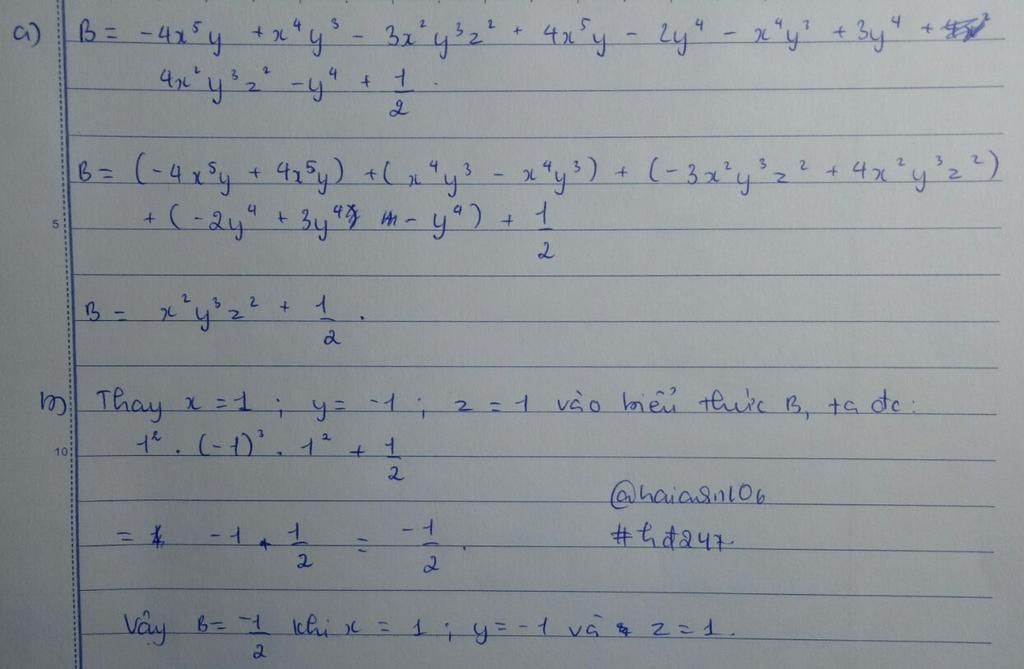 a) B = -4x⁵y + x⁴y³ - 3x²y³z² + 4x⁵y - 2y⁴ - x⁴y³ + 3y⁴ +
4x²y³z² - y⁴ + 1/2.
B = (-4x⁵y + 4x⁵y) + (x⁴y³ - x⁴y³) + (-3x²y³z² + 4x²y³z²)
5 + (-2y⁴ + 3y⁴ - y⁴) + 1/2
B = x²y³z² + 1/2.
b) Thay x = 1 ; y = -1 ; z = 1 vào biểu thức B, ta đc:
10 1² . (-1)³ . 1² + 1/2
@haian2106
= -1 + 1/2 = -1/2.
#hđ247
Vậy B = -1/2 khi x = 1 ; y = -1 và z = 1.